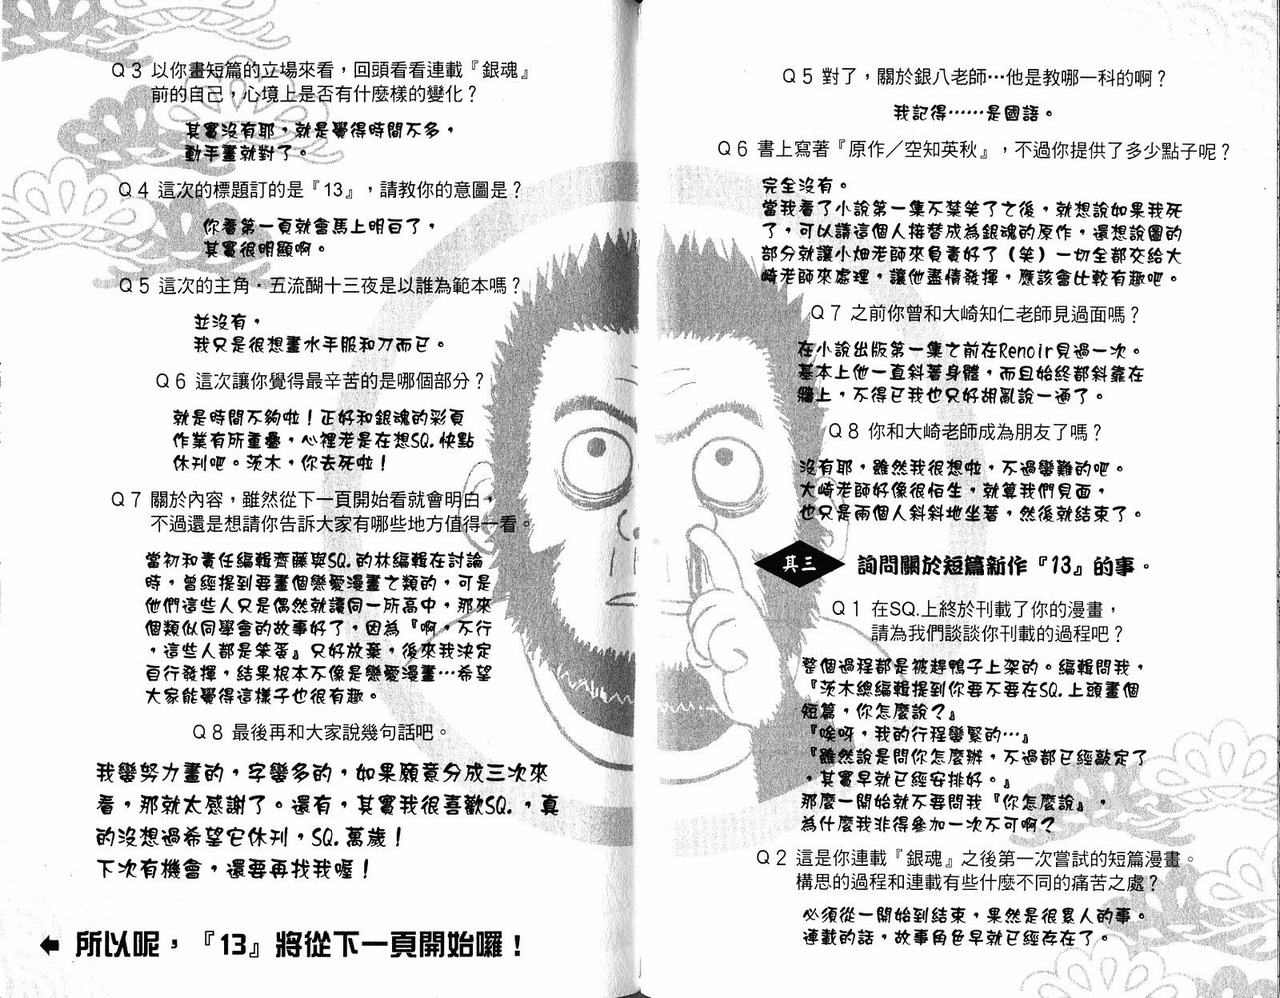 Q5 對了，關於銀八老師…他是教哪一科的啊？
我記得……是國語。
Q6 書上寫著『原作／空知英秋』，不過你提供了多少點子呢？
完全沒有。
當我看了小說第一集不禁笑了之後，就想說如果我死
了，可以請這個人接替成為銀魂的原作，還想說圖的
部分就讓小畑老師來負責好了（笑）一切全部交給大
崎老師來處理，讓他盡情發揮，應該會比較有趣吧。
Q7 之前你曾和大崎知仁老師見過面嗎？
在小說出版第一集之前在Renoir見過一次。
基本上他一直斜著身體，而且始終都斜靠在
牆上，不得已我也只好胡亂說一通了。
Q8 你和大崎老師成為朋友了嗎？
沒有耶，雖然我很想啦，不過蠻難的吧。
大崎老師好像很怕生，就算我們見面，
也只是兩個人斜斜地坐著，然後就結束了。
其三 詢問關於短篇新作『13』的事。
Q1 在SQ.上終於刊載了你的漫畫，
請為我們談談你刊載的過程吧？
整個過程都是被趕鴨子上架的。編輯問我，
『茨木總編輯提到你要不要在SQ.上頭畫個
短篇，你怎麼說？』
『唉呀，我的行程蠻緊的…』
『雖然說是問你怎麼辦，不過都已經敲定了
，其實早就已經安排好。』
那麼一開始就不要問我『你怎麼說』，
為什麼我非得參加一次不可啊？
Q2 這是你連載『銀魂』之後第一次嘗試的短篇漫畫。
構思的過程和連載有些什麼不同的痛苦之處？
必須從一開始到結束，果然是很累人的事。
連載的話，故事角色早就已經存在了。
Q3 以你畫短篇的立場來看，回頭看看連載『銀魂』
前的自己，心境上是否有什麼樣的變化？
其實沒有耶，就是覺得時間不多，
動手畫就對了。
Q4 這次的標題訂的是『13』，請教你的意圖是？
你看第一頁就會馬上明白了，
其實很明顯啊。
Q5 這次的主角．五流醐十三夜是以誰為範本嗎？
並沒有，
我只是很想畫水手服和刀而已。
Q6 這次讓你覺得最辛苦的是哪個部分？
就是時間不夠啦！正好和銀魂的彩頁
作業有所重疊，心裡老是在想SQ.快點
休刊吧。茨木，你去死啦！
Q7 關於內容，雖然從下一頁開始看就會明白，
不過還是想請你告訴大家有哪些地方值得一看。
當初和責任編輯齊藤與SQ.的林編輯在討論
時，曾經提到要畫個戀愛漫畫之類的，可是
他們這些人只是偶然就讀同一所高中，那來
個類似同學會的故事好了，因為『啊，不行
，這些人都是笨蛋』只好放棄，後來我決定
自行發揮，結果根本不像是戀愛漫畫…希望
大家能覺得這樣子也很有趣。
Q8 最後再和大家說幾句話吧。
我蠻努力畫的，字蠻多的，如果願意分成三次來
看，那就太感謝了。還有，其實我很喜歡SQ.，真
的沒想過希望它休刊，SQ.萬歲！
下次有機會，還要再找我喔！
所以呢，『13』將從下一頁開始囉！